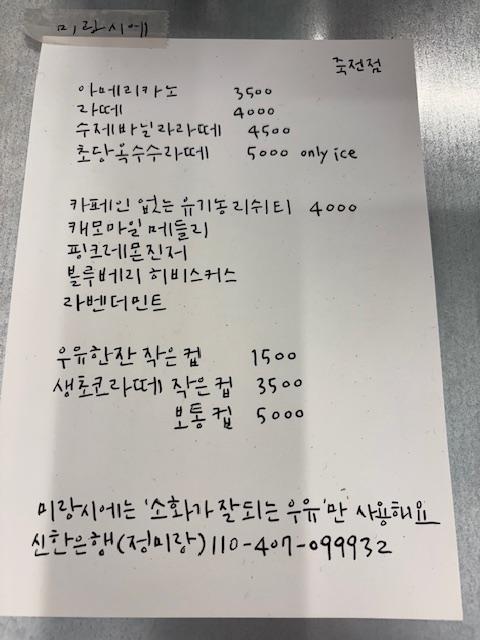 미랑시에
죽전점
아메리카노 3500
라떼 4000
수제바닐라라떼 4500
초당옥수수라떼 5000 only ice
카페인 없는 유기농리쉬티 4000
캐모마일 메들리
핑크레몬진저
블루베리 히비스커스
라벤더민트
우유한잔 작은컵 1500
생초코라떼 작은컵 3500
보통컵 5000
미랑시에는 '소화가 잘되는 우유'만 사용해요
신한은행(정미랑)110-407-099932